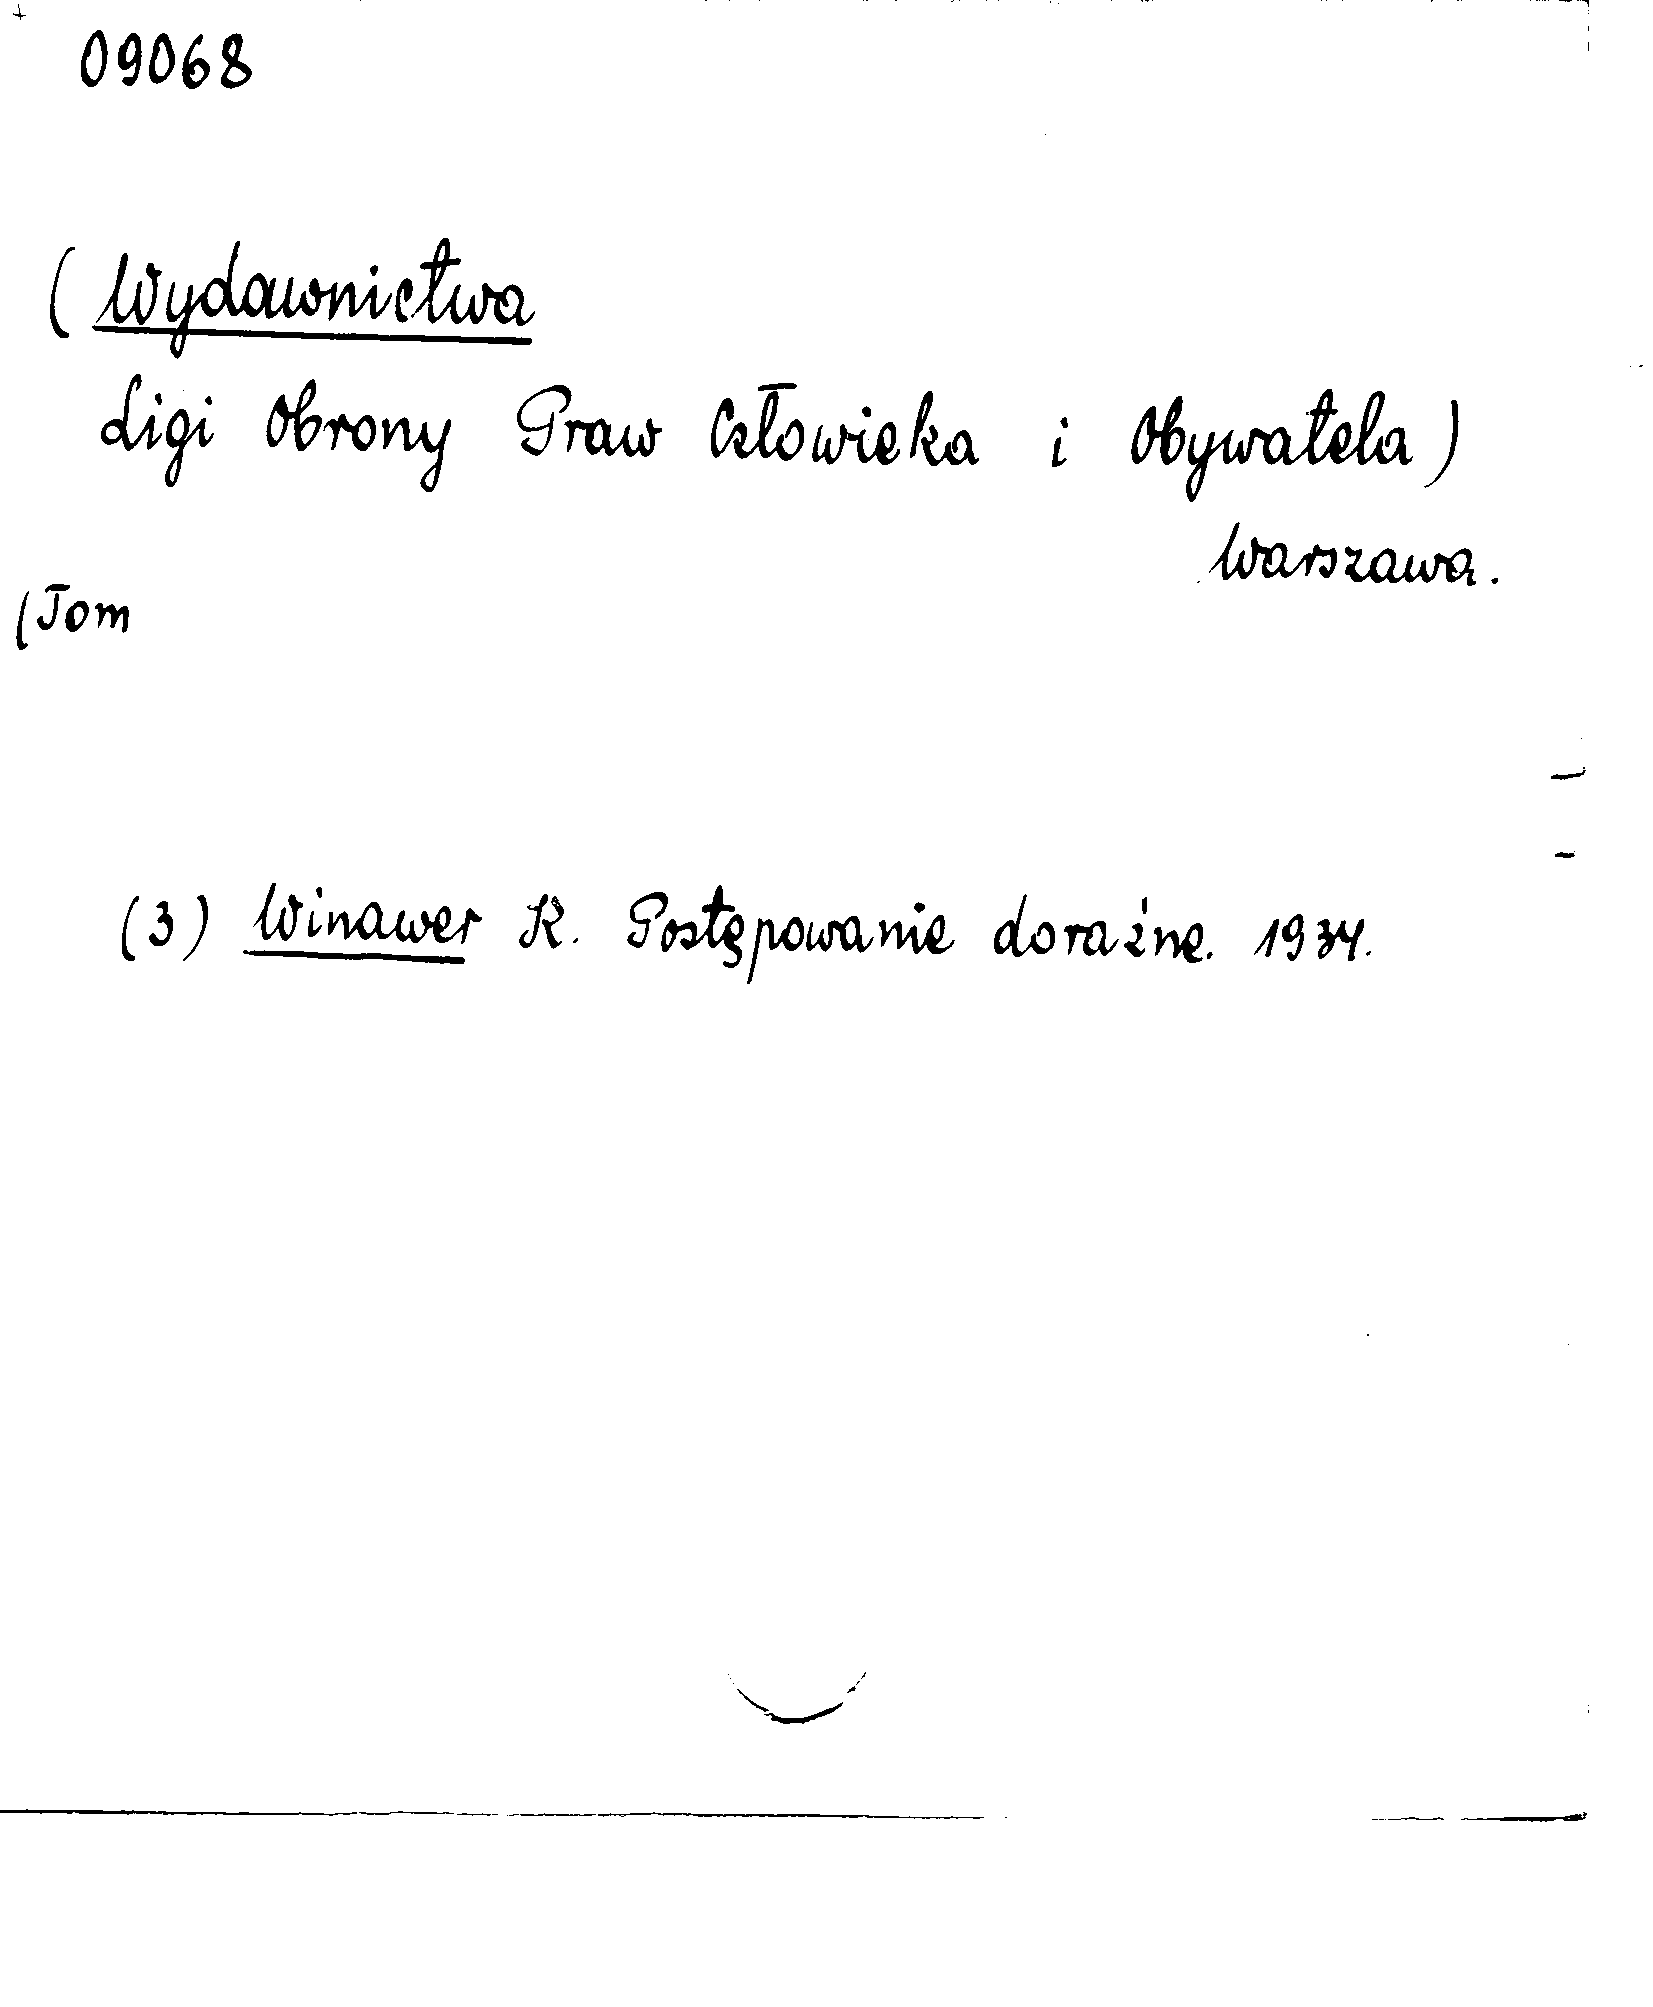 09068
(Wydawnictwa
Ligi Obrony Praw Człowieka i Obywatela)
Warszawa.
(Tom
(3) Winawer K. Postępowanie doraźne. 1934.